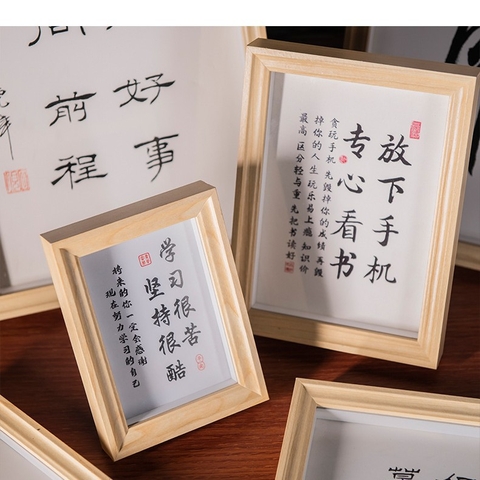 好事
前程
放下手机
专心看书
贪玩手机先毁掉你的成绩再毁
掉你的人生玩乐易上瘾知识价
最高区分轻与重先把书读好
学习很苦
坚持很酷
将来的你一定会感谢
现在努力学习的自己